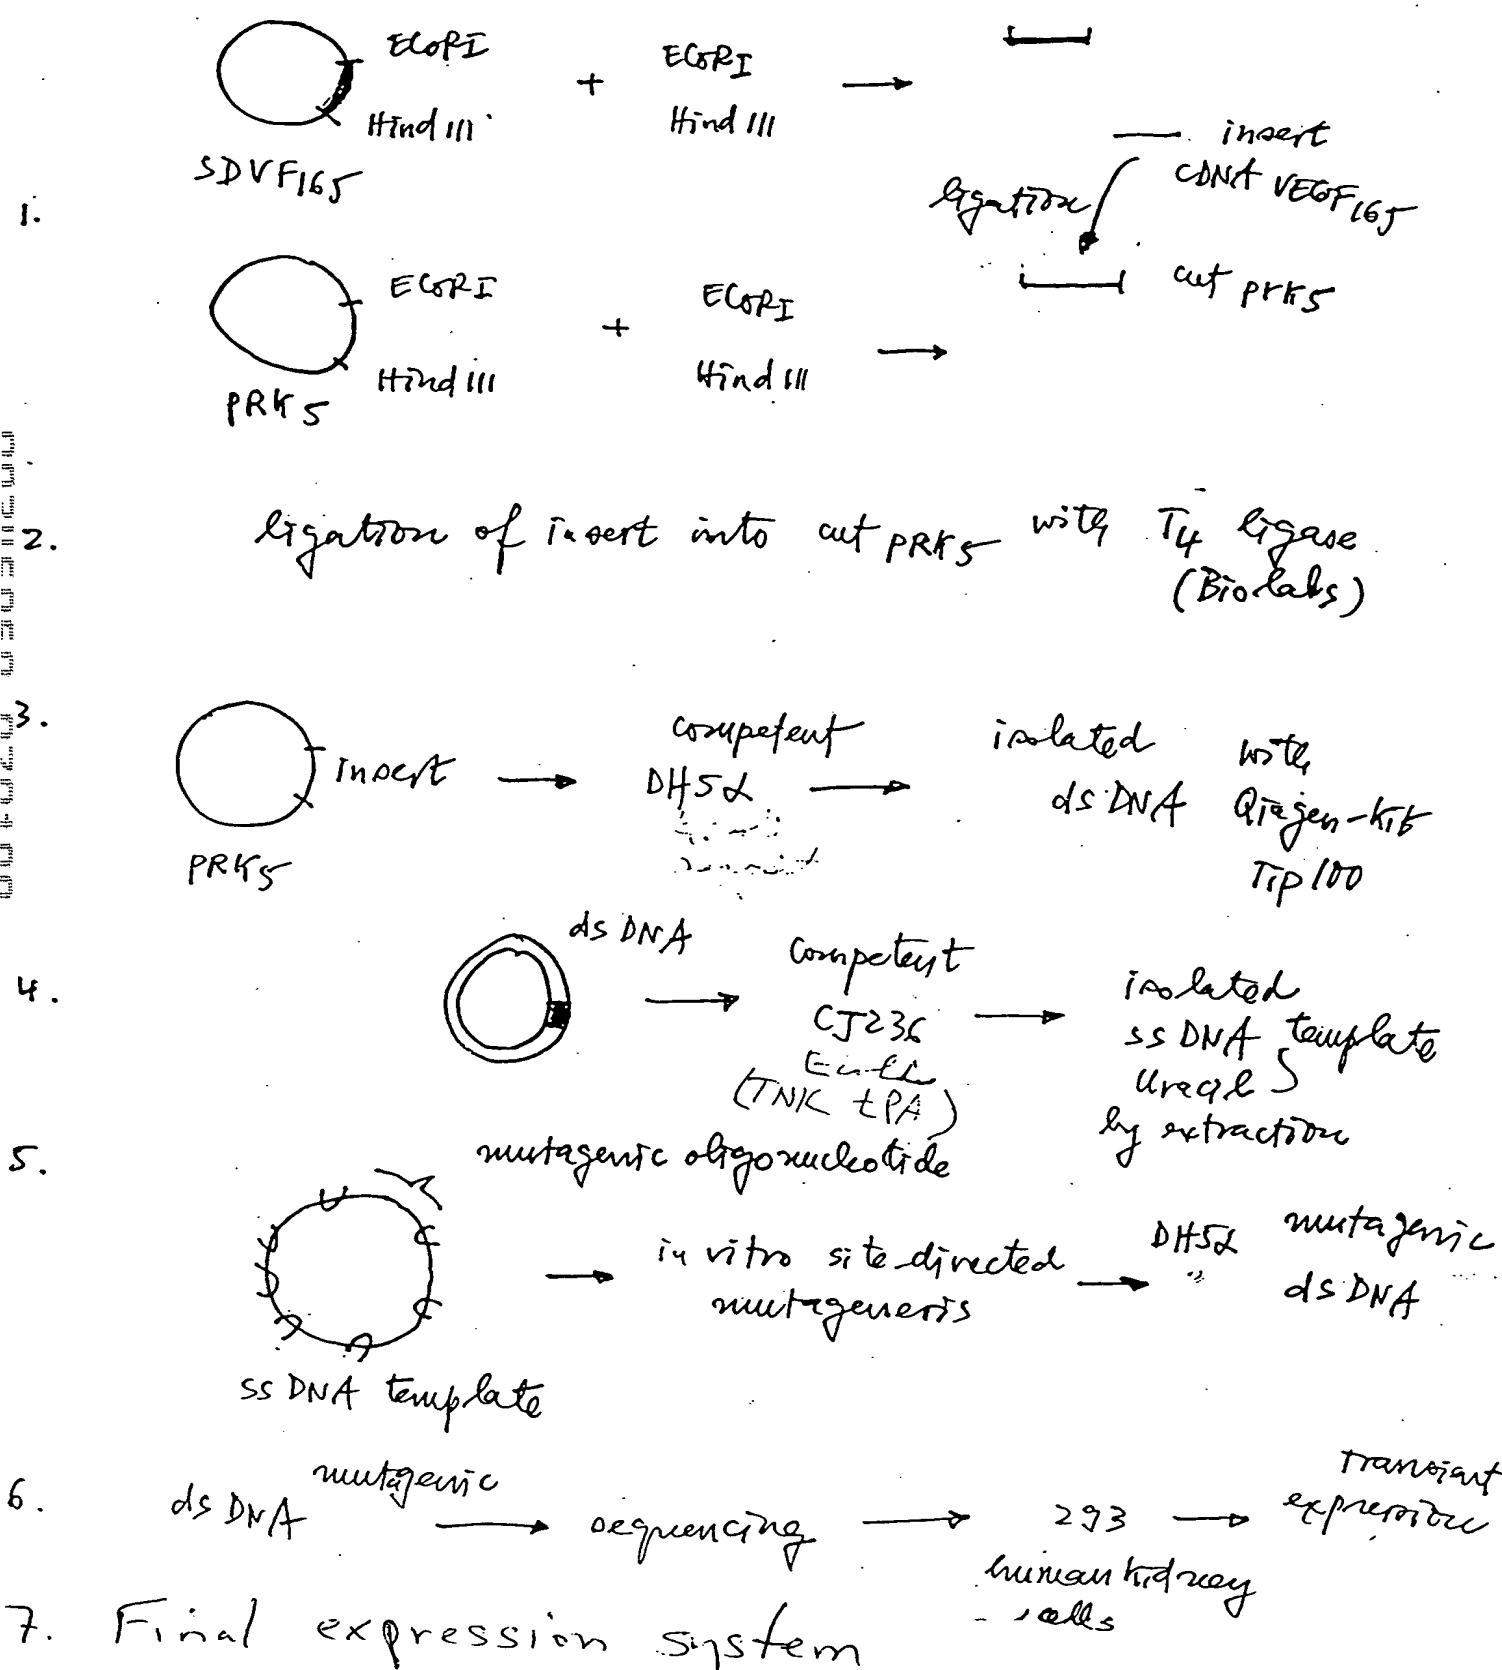 EcoRI
EcoRI
Hind III
Hind III
SDVF165
insert
cDNA VEGF165
ligation
1.
EcoRI
EcoRI
cut pRK5
+
+
Hind III
Hind III
PRK5
2. ligation of insert into cut PRK5 with T4 ligase
(Biolabs)
3.
insert
competent
DH5α
isolated
ds DNA
with
Qiagen-Kit
Tip 100
PRK5
4.
ds DNA
competent
CJ236
(TNK tPA)
isolated
ss DNA template
Uracil
by extraction
5.
mutagenic oligonucleotide
in vitro site-directed
mutagenesis
DH5α
mutagenic
ds DNA
ss DNA template
6. ds DNA mutagenic
sequencing
293
human kidney
cells
transient
expression
7. Final expression system